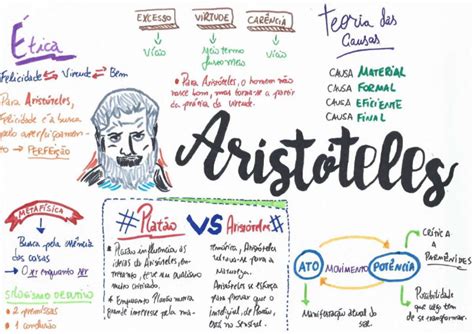 Ética
Felicidade ↔ Virtude ↔ Bem
• Para Aristóteles,
Felicidade é a busca
pelo aperfeiçoamen-
to → PERFEIÇÃO
EXCESSO
VIRTUDE
CARÊNCIA
Vício
Meio termo
Justo meio
Vício
• Para Aristóteles, o homem não
nasce bom, mas torna-se a partir
da prática da virtude.
Teoria das
Causas
CAUSA MATERIAL
CAUSA FORMAL
CAUSA EFICIENTE
CAUSA FINAL
Aristóteles
METAFÍSICA
Busca pela essência
das coisas
→ O SER enquanto SER
SILOGISMO
• 2 premissas
• 1 conclusão
# Platão VS Aristóteles #
• Platão influencia as
ideias do Aristóteles, en-
tretanto, teve seu dualismo
muito criticado.
• Enquanto Platão queria
grande interesse pela
Aristóteles
Aristóteles se esforça
para provar que o
inteligível, de Platão,
está no Sensível.
ATO
MOVIMENTO
POTÊNCIA
Manifestação atual do
ser.
CRÍTICA
A
PARMÊNIDES
Possibilidades
que algo tem
de se transformar.